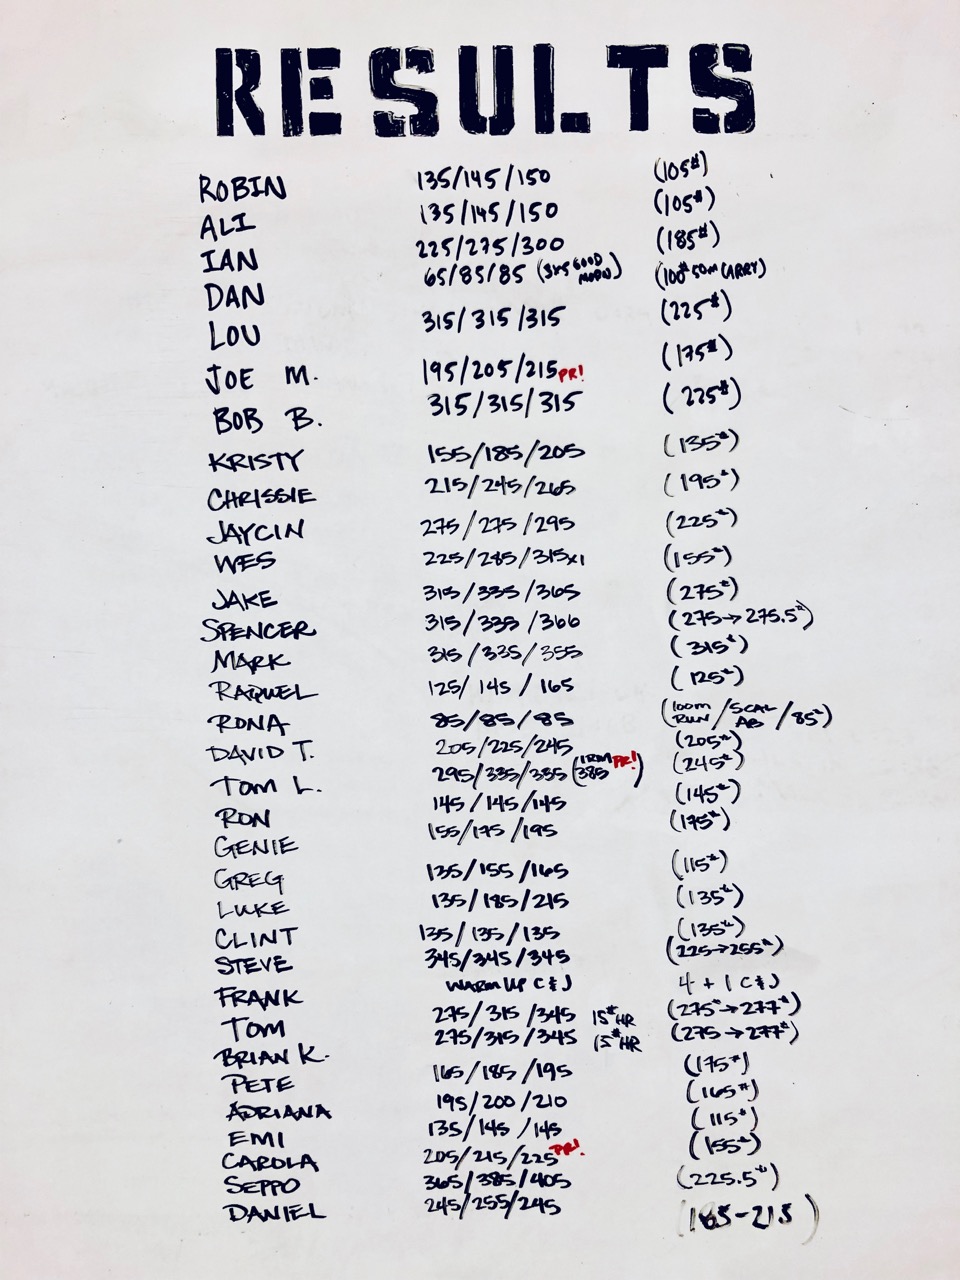 RESULTS
ROBIN 135/145/150 (105#)
ALI 135/145/150 (105#)
IAN 225/275/300 (185#)
DAN 65/85/85 (3x5 GOOD MORN) (100# 50M CARRY)
LOU 315/315/315 (225#)
JOE M. 195/205/215 PR! (175#)
BOB B. 315/315/315 (225#)
KRISTY 155/185/205 (135#)
CHRISSIE 215/245/265 (195#)
JAYCIN 275/275/295 (225#)
WES 225/285/315x1 (155#)
JAKE 315/335/365 (275#)
SPENCER 315/335/366 (275→275.5#)
MARK 315/335/355 (315#)
RAQUEL 125/145/165 (125#)
RONA 85/85/85 (100M RUN/5CAL AB/85#)
DAVID T. 205/225/245 (205#)
TOM L. 295/335/335 (1RM 385 PR!) (245#)
RON 145/145/145 (145#)
GENIE 155/175/195 (175#)
GREG 135/155/165 (115#)
LUKE 135/185/215 (135#)
CLINT 135/135/135 (135#)
STEVE 345/345/345 (225→255#)
FRANK WARM UP C&J 4 + 1 C&J
TOM 275/315/345 15# HR (275#→277#)
BRIAN K. 275/315/345 15# HR (275→277#)
PETE 165/185/195 (175#)
ADRIANA 195/200/210 (165#)
EMI 135/145/145 (115#)
CAROLA 205/215/225 PR! (155#)
SEPPO 365/385/405 (225.5#)
DANIEL 245/255/245 (185-215)